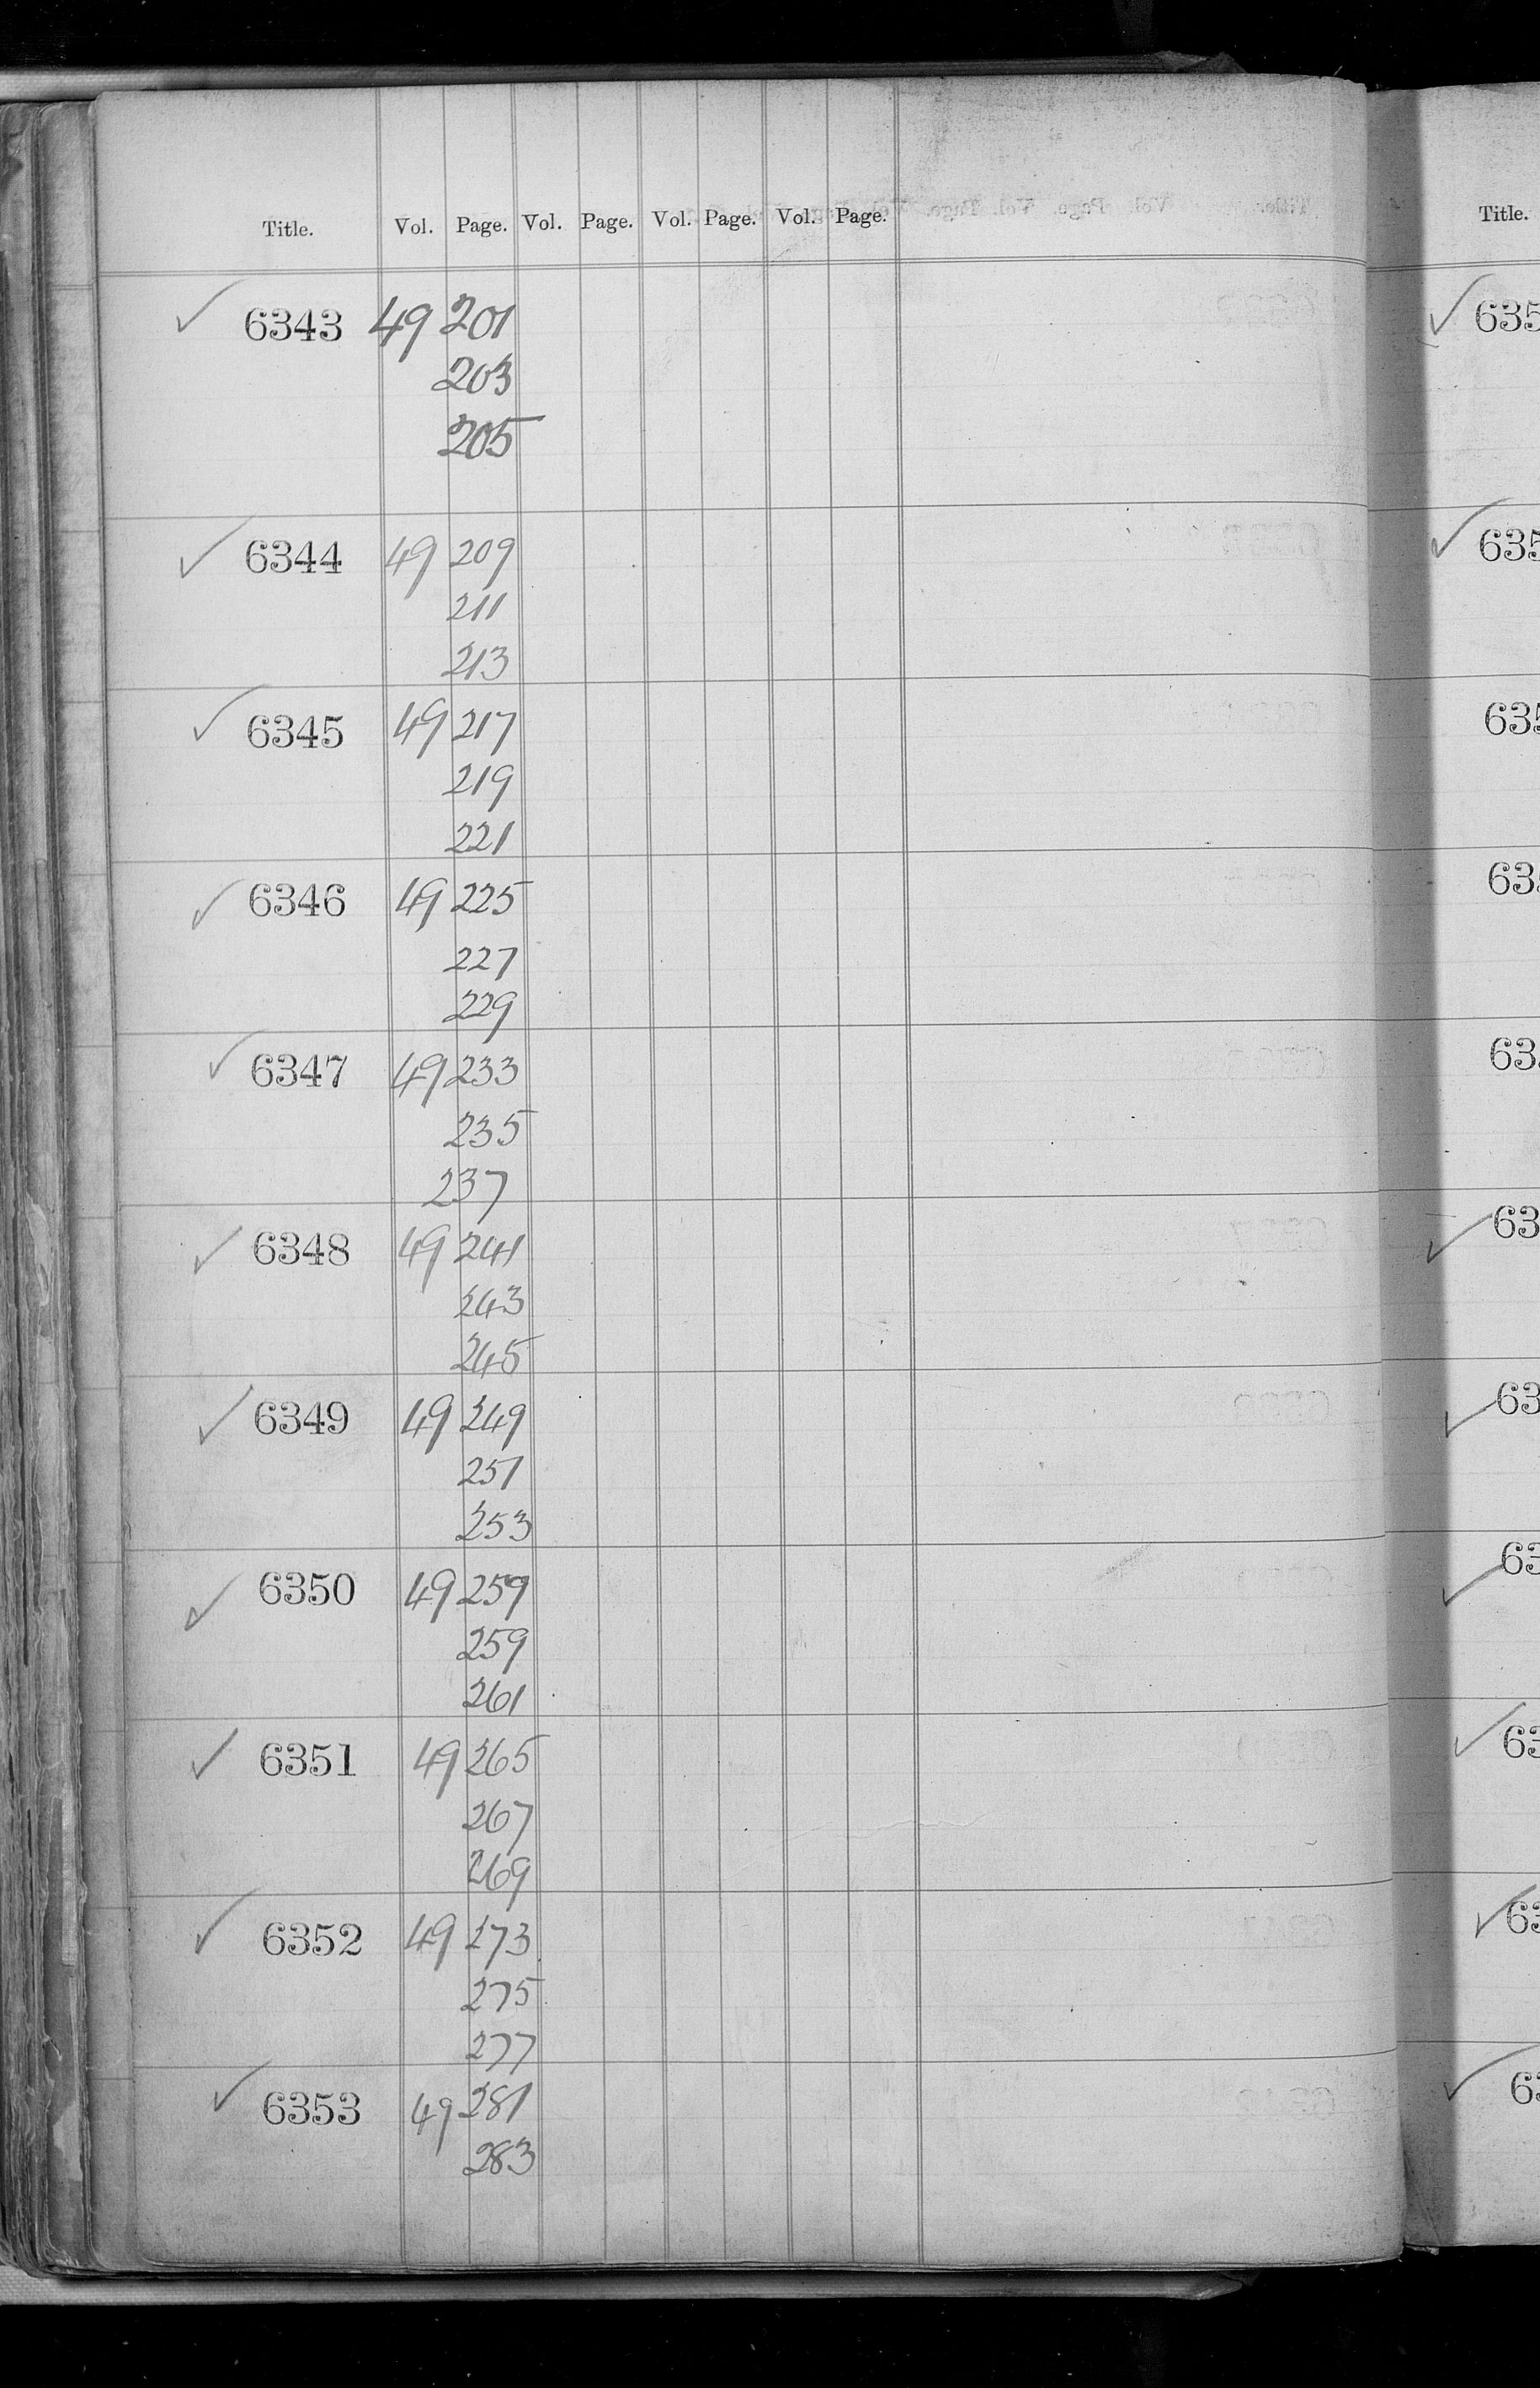 Title. Vol. Page. Vol. Page. Vol. Page. Vol. Page.
✓ 6343 49 201
203
205
✓ 6344 49 209
211
213
✓ 6345 49 217
219
221
✓ 6346 49 225
227
229
✓ 6347 49 233
235
237
✓ 6348 49 241
243
245
✓ 6349 49 249
251
253
✓ 6350 49 259
259
261
✓ 6351 49 265
267
269
✓ 6352 49 273
275
277
✓ 6353 49 281
283
Title.